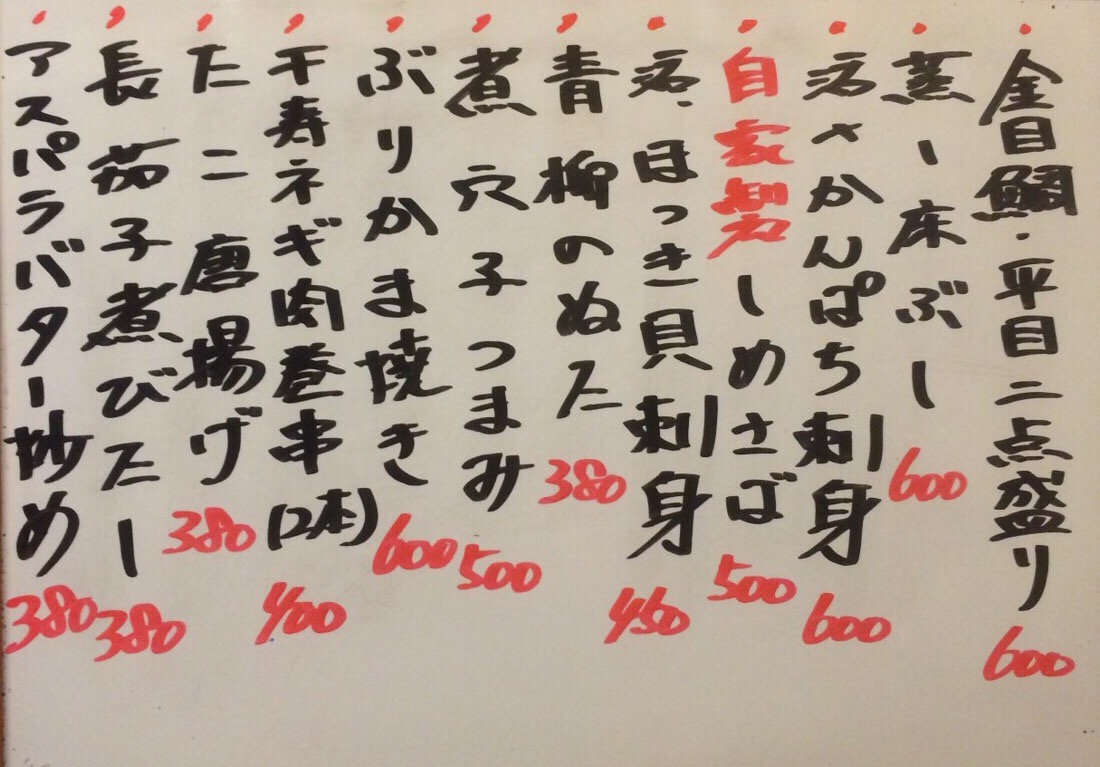 金目鯛・平目二点盛り 600
蒸し床ぶし 600
活〆かんぱち刺身 600
自家製しめさば 500
活、ほっき貝刺身 450
青柳のぬた 380
煮穴子つまみ 500
ぶりかま焼き 600
千寿ネギ肉巻串(2本) 400
たこ唐揚げ 380
長茄子煮びたし 380
アスパラバター炒め 380